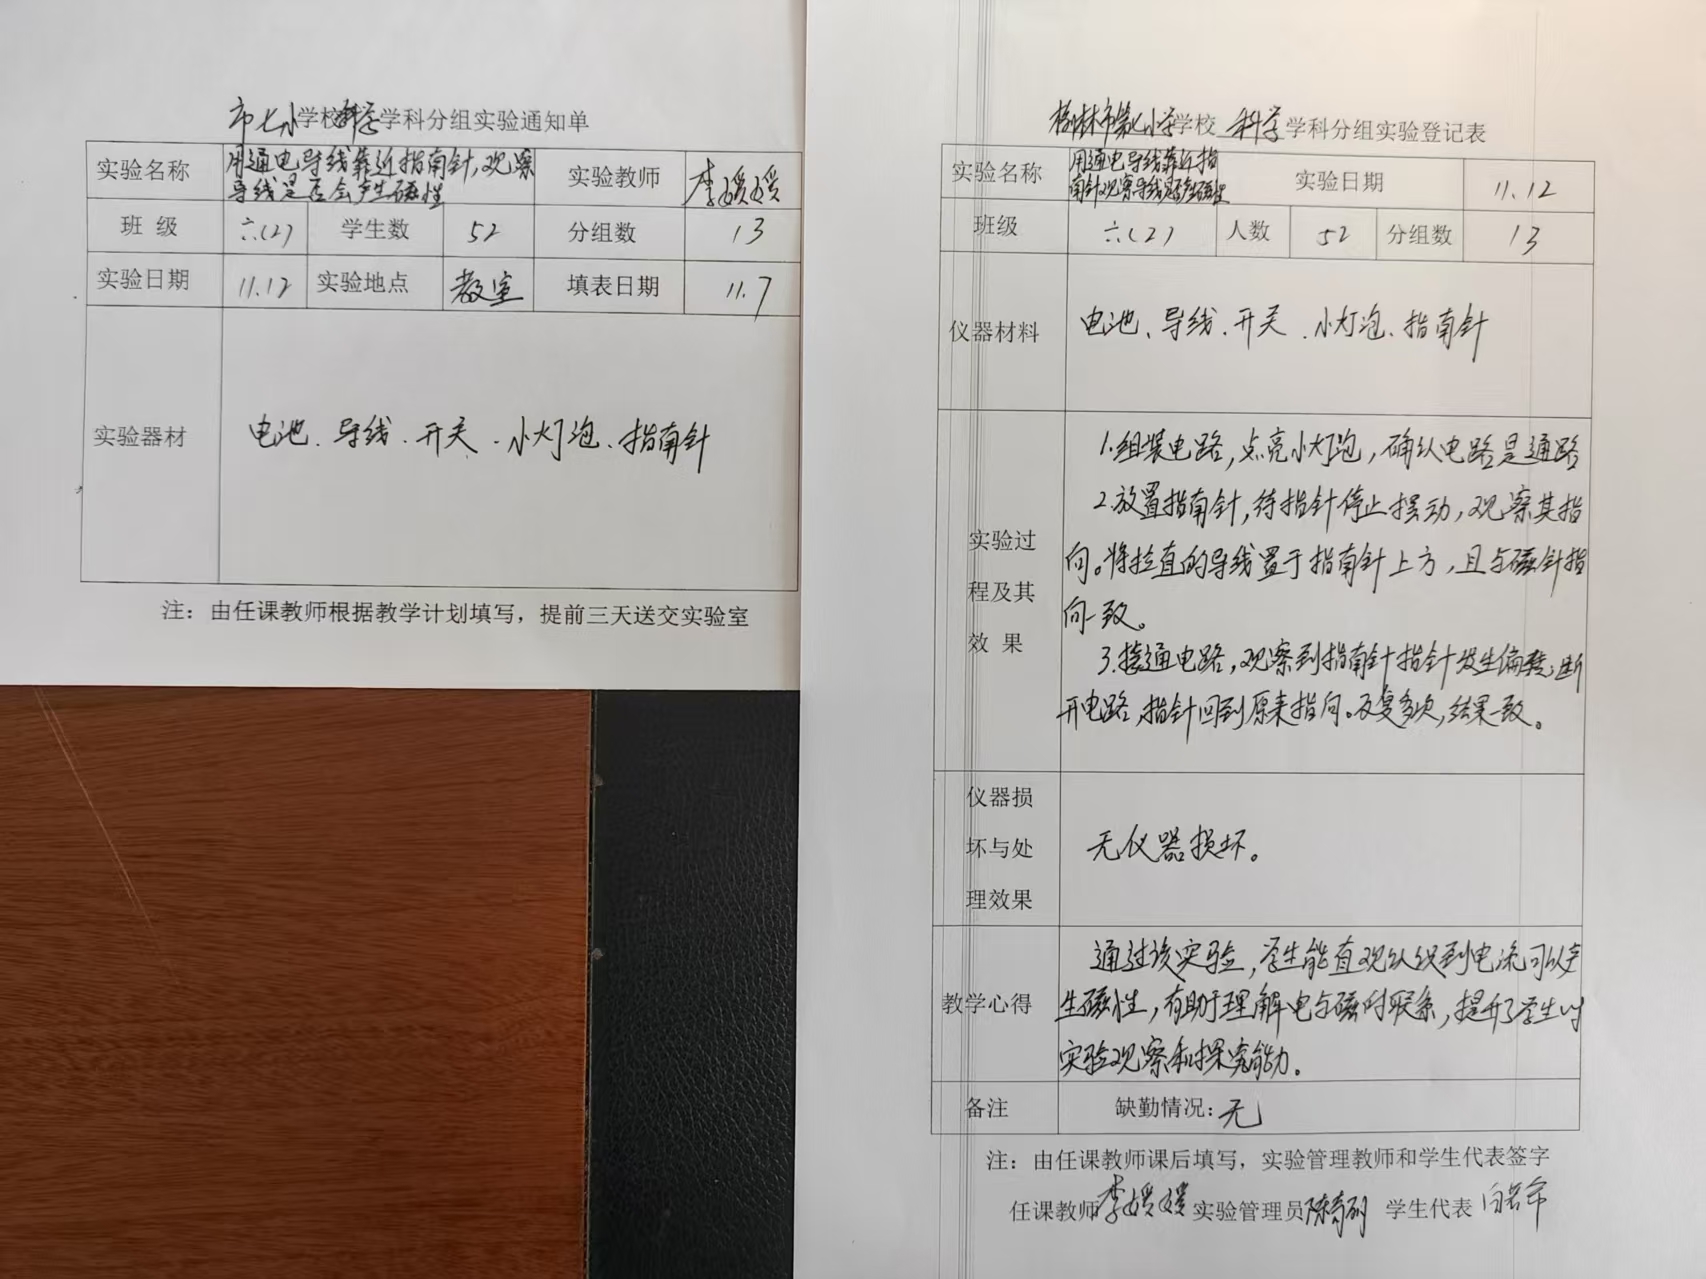 市七小学校科学学科分组实验通知单
实验名称 用通电导线靠近指南针,观察 实验教师 李媛媛
导线是否会产生磁性
班 级 六(2) 学生数 52 分组数 13
实验日期 11.12 实验地点 教室 填表日期 11.7
实验器材 电池、导线、开关、小灯泡、指南针
注：由任课教师根据教学计划填写，提前三天送交实验室
榆林市第七小学学校 科学 学科分组实验登记表
实验名称 用通电导线靠近指 实验日期 11.12
南针观察导线是否产生磁性
班级 六(2) 人数 52 分组数 13
仪器材料 电池、导线、开关、小灯泡、指南针
实验过
程及其
效 果
1.组装电路,点亮小灯泡,确认电路是通路
2.放置指南针,待指针停止摆动,观察其指
向。将拉直的导线置于指南针上方,且与磁针指
向一致。
3.接通电路,观察到指南针指针发生偏转;断
开电路,指针回到原来指向。反复多次,结果一致。
仪器损
坏与处
理效果
无仪器损坏。
教学心得
通过该实验,学生能直观认识到电流可以产
生磁性,有助于理解电与磁的联系,提升了学生的
实验观察和探究能力。
备注 缺勤情况：无
注：由任课教师课后填写，实验管理教师和学生代表签字
任课教师 李媛媛 实验管理员 学生代表